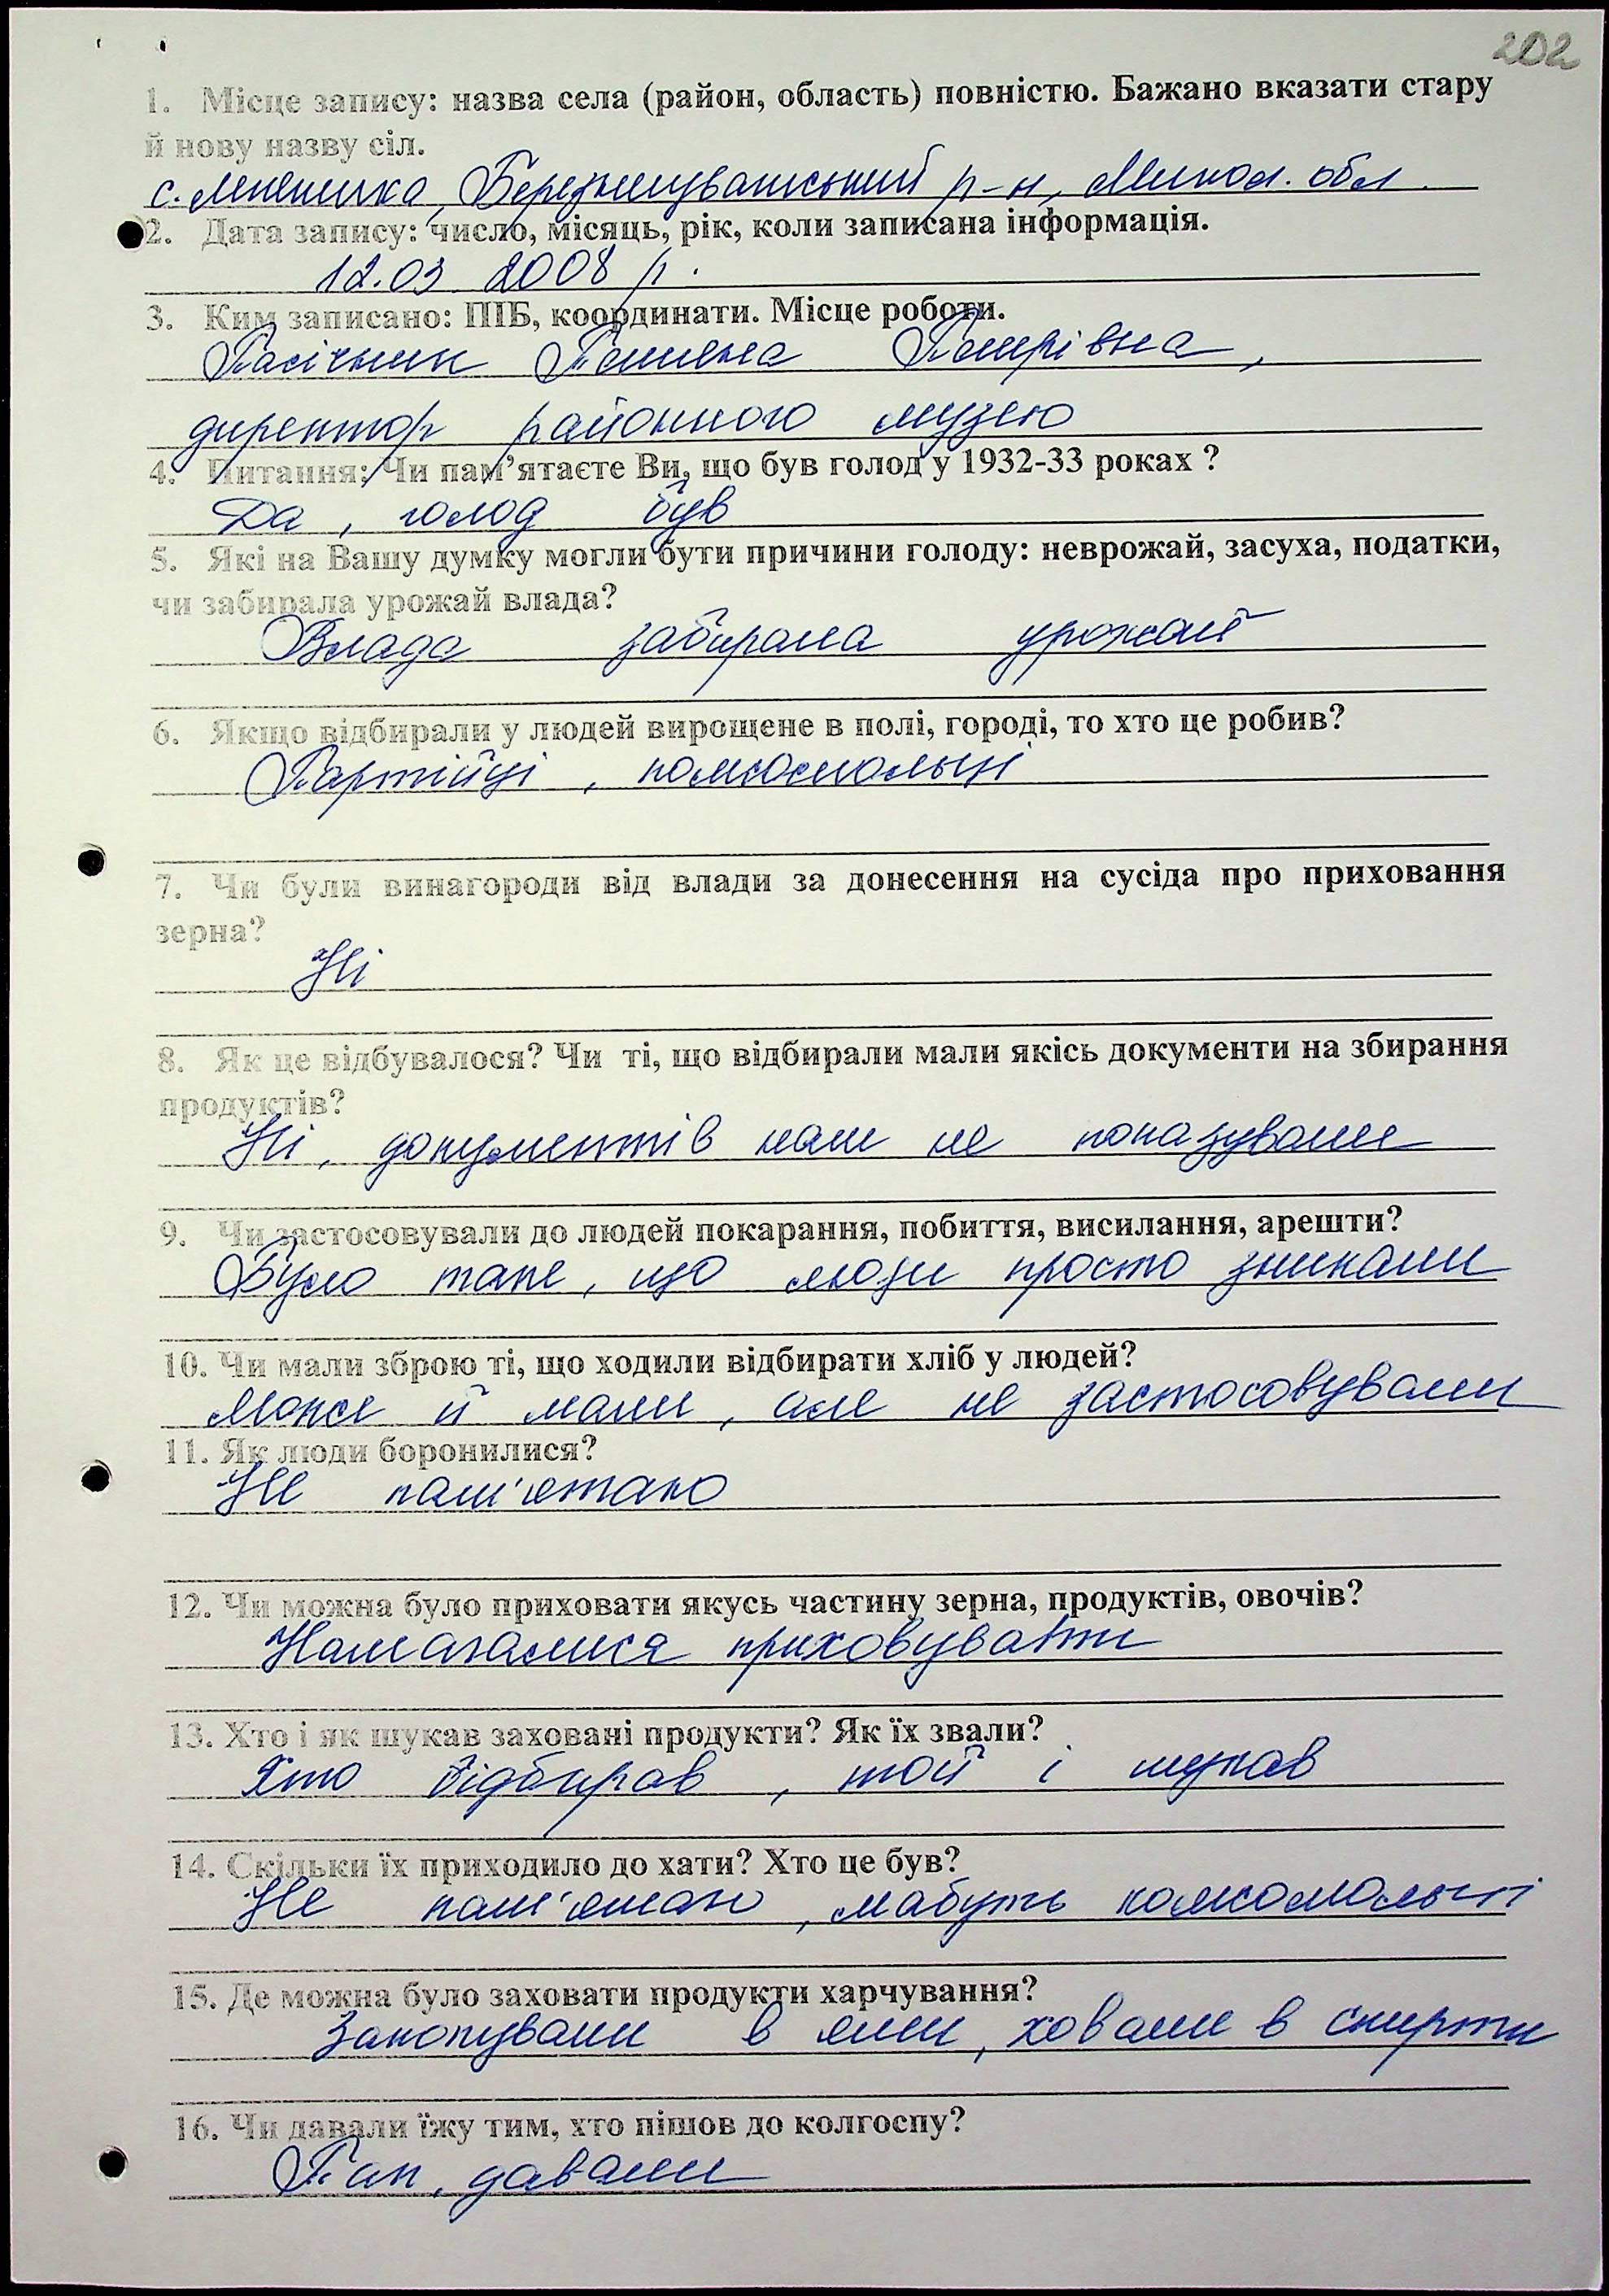 202
1. Місце запису: назва села (район, область) повністю. Бажано вказати стару
й нову назву сіл.
с. Березнегуватський р-н, Микол. обл.
2. Дата запису: число, місяць, рік, коли записана інформація.
12.03 2008 р.
3. Ким записано: ПІБ, координати. Місце роботи.
Пасічник Тетяна Петрівна,
директор районного музею
4. Питання: Чи пам’ятаєте Ви, що був голод у 1932-33 роках ?
Да, голод був
5. Які на Вашу думку могли бути причини голоду: неврожай, засуха, податки,
чи забирала урожай влада?
Влада забирала урожай
6. Якщо відбирали у людей вирощене в полі, городі, то хто це робив?
Партійці, комсомольці
7. Чи були винагороди від влади за донесення на сусіда про приховання
зерна?
Ні
8. Як це відбувалося? Чи ті, що відбирали мали якісь документи на збирання
продуктів?
Ні, документів нам не показували
9. Чи застосовували до людей покарання, побиття, висилання, арешти?
Було таке, що люди просто зникали
10. Чи мали зброю ті, що ходили відбирати хліб у людей?
Може й мали, але не застосовували
11. Як люди боронилися?
Не пам'ятаю
12. Чи можна було приховати якусь частину зерна, продуктів, овочів?
Намагалися приховувати
13. Хто і як шукав заховані продукти? Як їх звали?
Хто відбирав, той і шукав
14. Скільки їх приходило до хати? Хто це був?
Не пам'ятаю, мабуть комсомольці
15. Де можна було заховати продукти харчування?
Закопували в ями, ховали в скирти
16. Чи давали їжу тим, хто пішов до колгоспу?
Так, давали